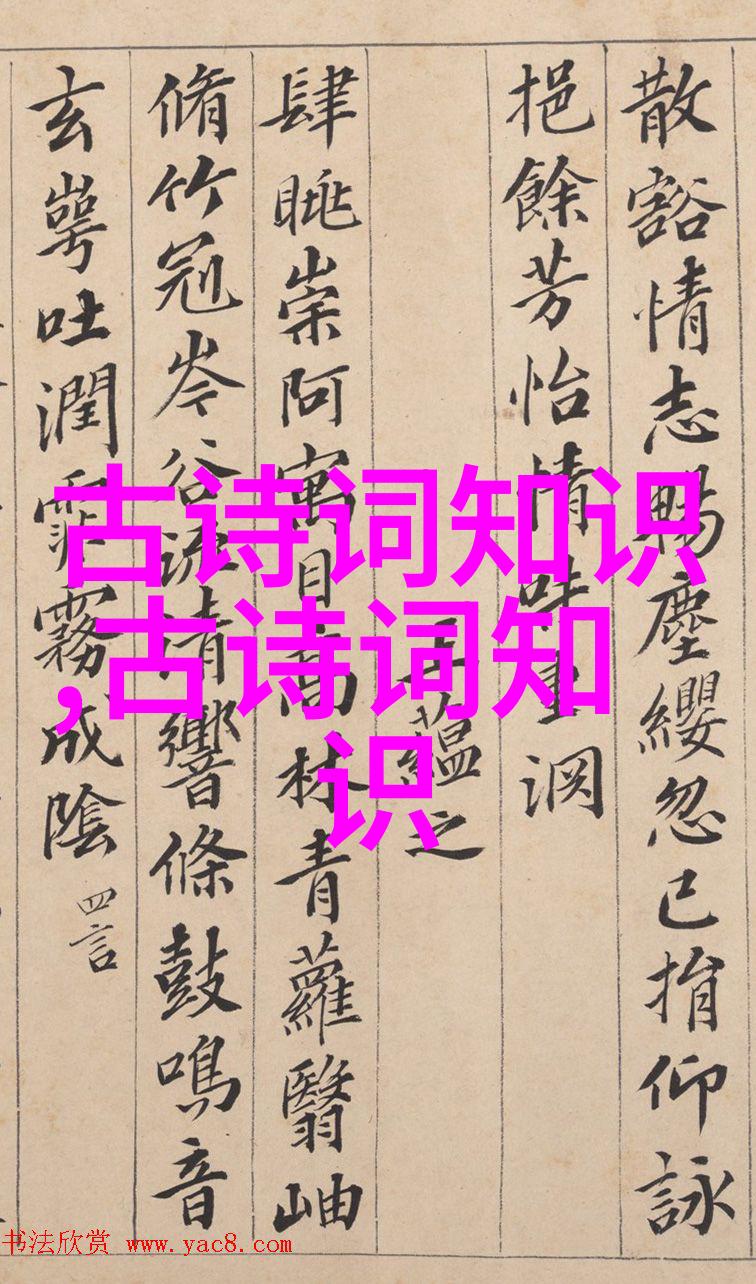 散豁情志暢塵纓忽已捐仰詠
挹餘芳怡情味重淵
王蘊之
肆眺崇阿寓目高林青蘿翳岫
脩竹冠岑谷流清響條鼓鳴音
玄崿吐潤霏霧成陰 四言
古诗词知识
,古诗词知
识
书法欣赏 www.yac8.com